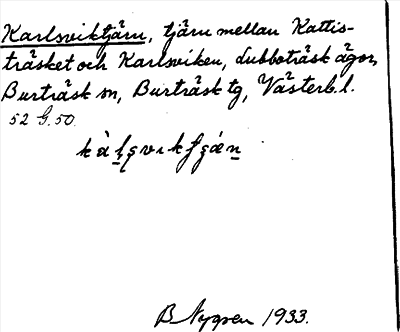 Karlsviktjärn, tjärn mellan Kattis-
träsket och Karlsviken, dubboträsk ägor,
Burträsk sn, Burträsk tg, Västerb. l.
52 G. 50.
B Nygren 1933.